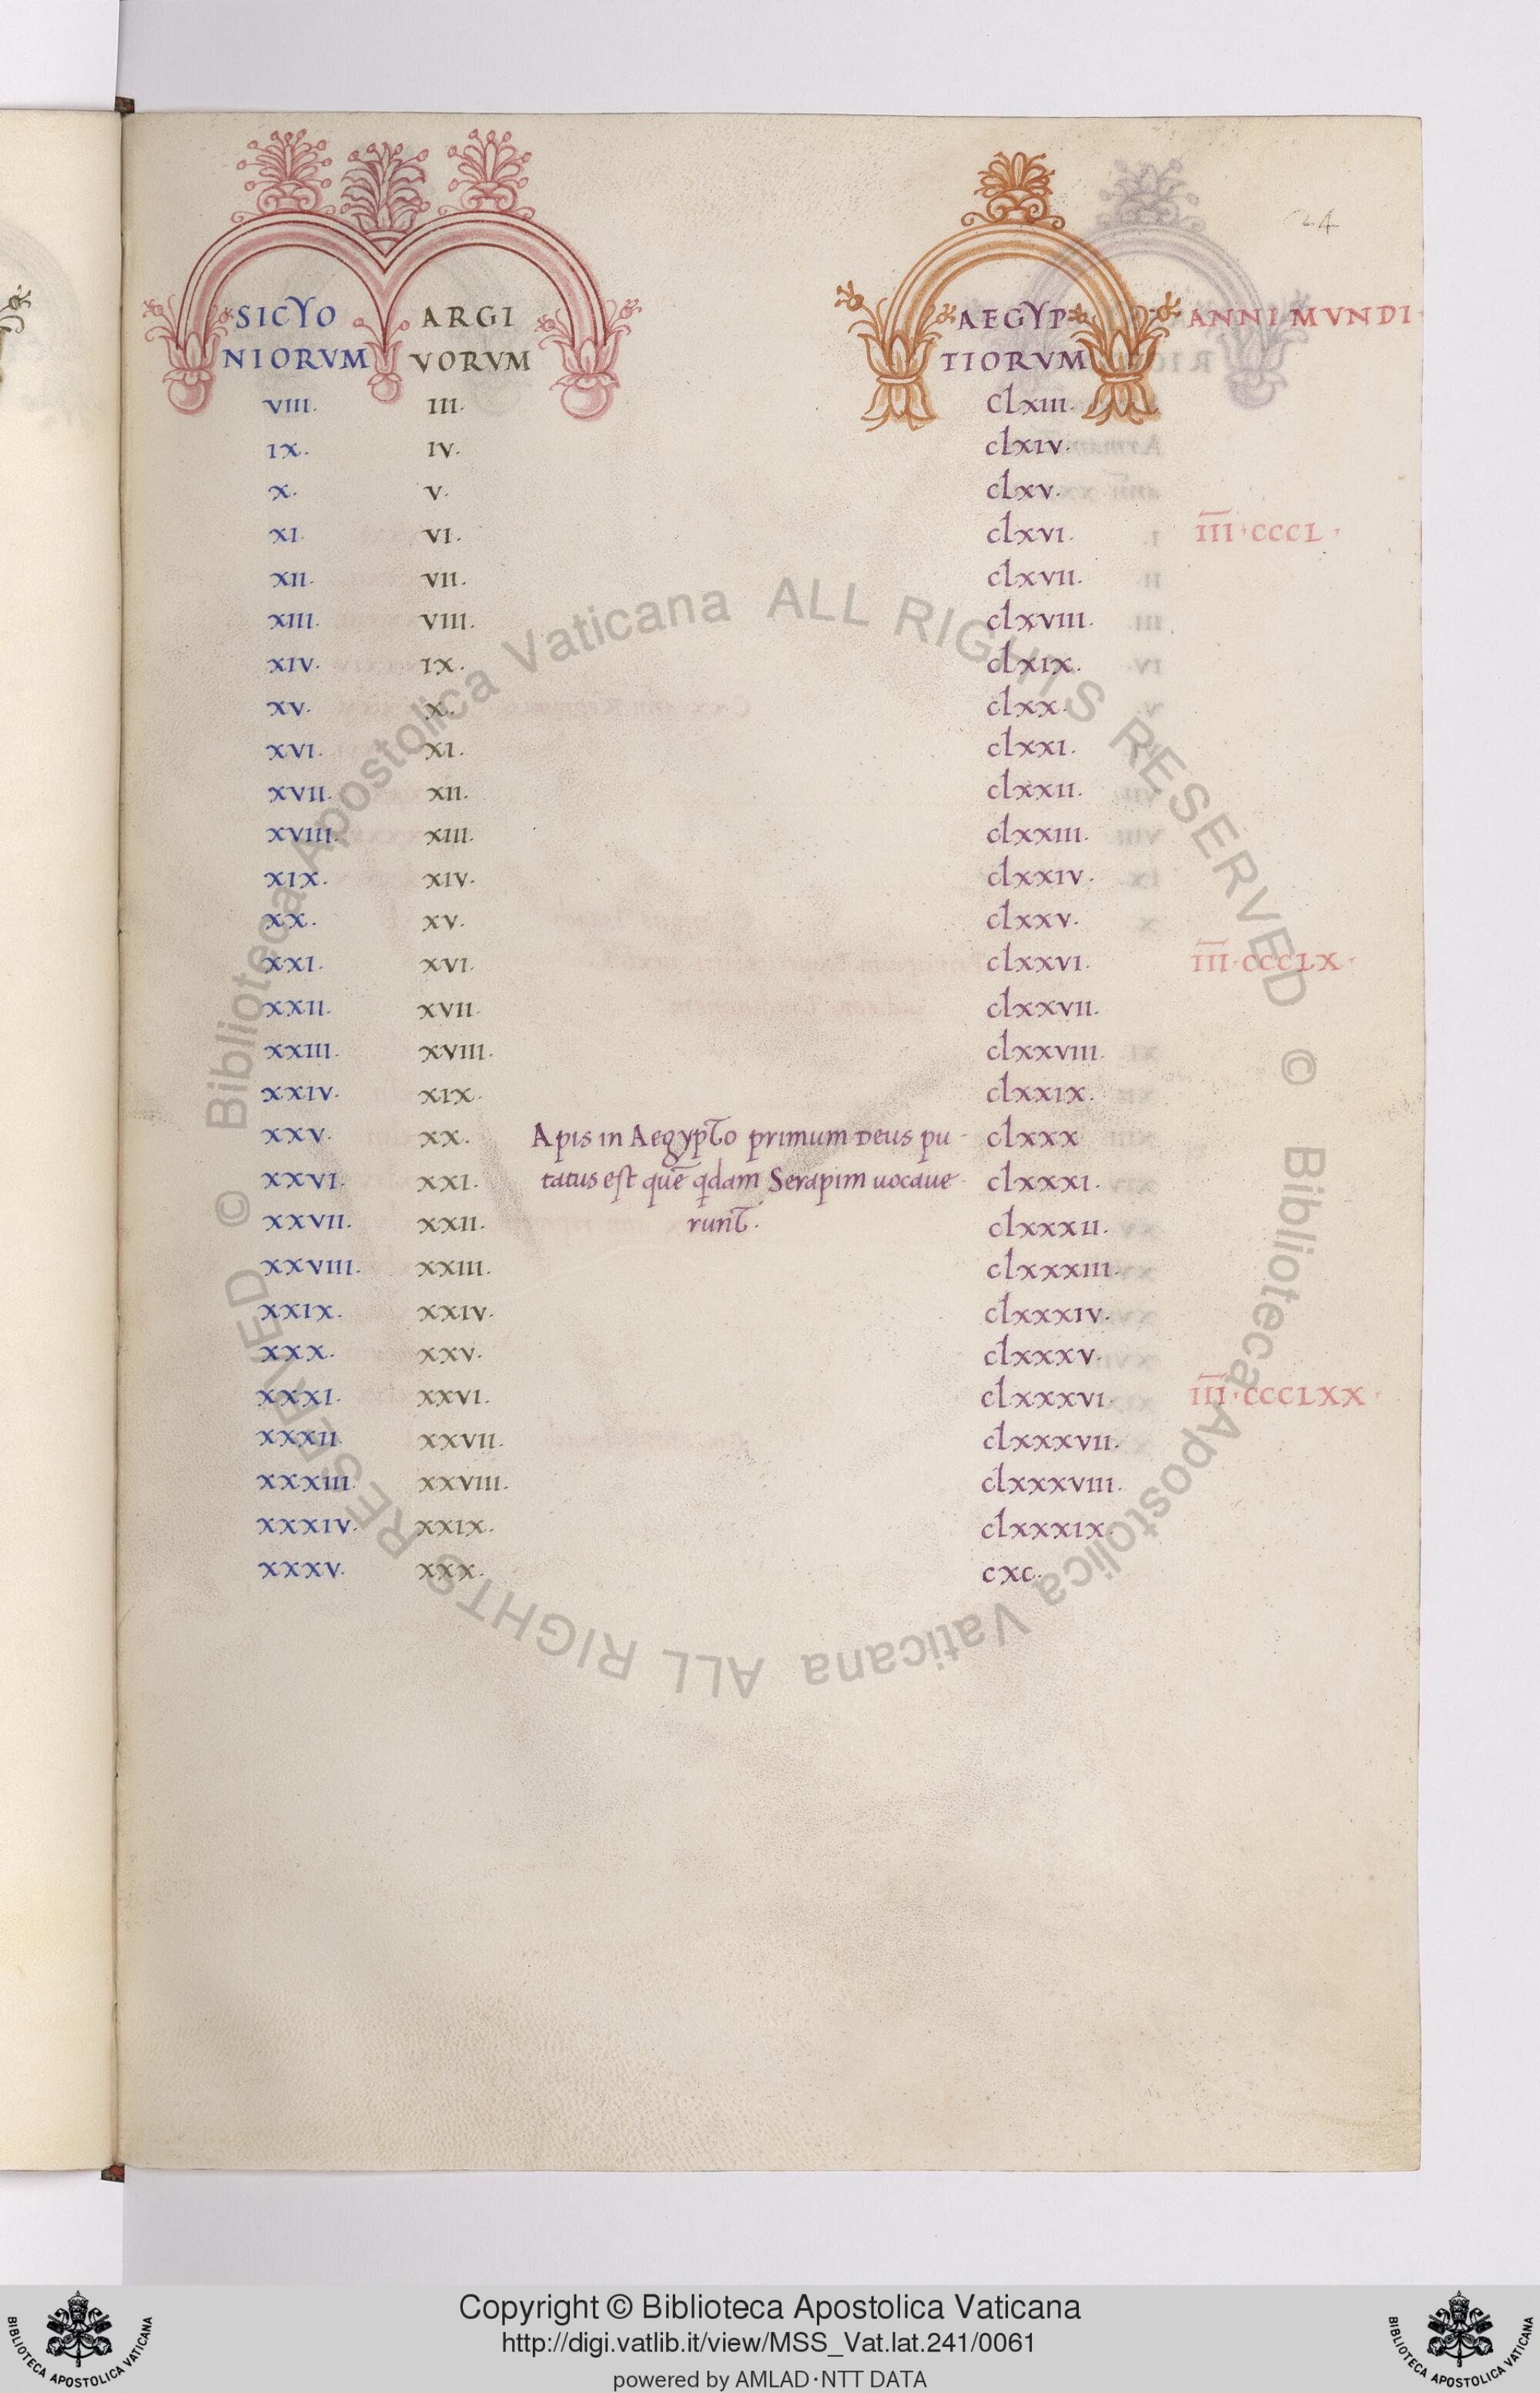 24
SICYO ARGI AEGYP ANNI MVNDI
NIORVM VORVM TIORVM
VIII. III. clxIII.
IX. IV. clxIV.
X. V. clxV.
XI. VI. clxVI. I̅I̅I̅·CCCL·
XII. VII. clxVII.
XIII. VIII. clxVIII.
XIV. IX. clxIX.
XV. X. clxx.
XVI. XI. clxxI.
XVII. XII. clxxII.
XVIII. XIII. clxxIII.
XIX. XIV. clxxIV.
XX. XV. clxxV.
XXI. XVI. clxxVI. I̅I̅I̅·CCCLX·
XXII. XVII. clxxVII.
XXIII. XVIII. clxxVIII.
XXIV. XIX. clxxIX.
XXV. XX. Apis in Aegypto primum Deus pu- clxxx
XXVI. XXI. tatus est quē qdam Serapim uocaue- clxxxI.
XXVII. XXII. runt. clxxxII.
XXVIII. XXIII. clxxxIII.
XXIX. XXIV. clxxxIV.
XXX. XXV. clxxxV.
XXXI. XXVI. clxxxVI. I̅I̅I̅·CCCLXX·
XXXII. XXVII. clxxxVII.
XXXIII. XXVIII. clxxxVIII.
XXXIV. XXIX. clxxxIX.
XXXV. XXX. cxc.
© Biblioteca Apostolica Vaticana ALL RIGHTS RESERVED
© Biblioteca Apostolica Vaticana ALL RIGHTS RESERVED
Copyright © Biblioteca Apostolica Vaticana
http://digi.vatlib.it/view/MSS_Vat.lat.241/0061
powered by AMLAD·NTT DATA
BIBLIOTECA APOSTOLICA VATICANA
BIBLIOTECA APOSTOLICA VATICANA